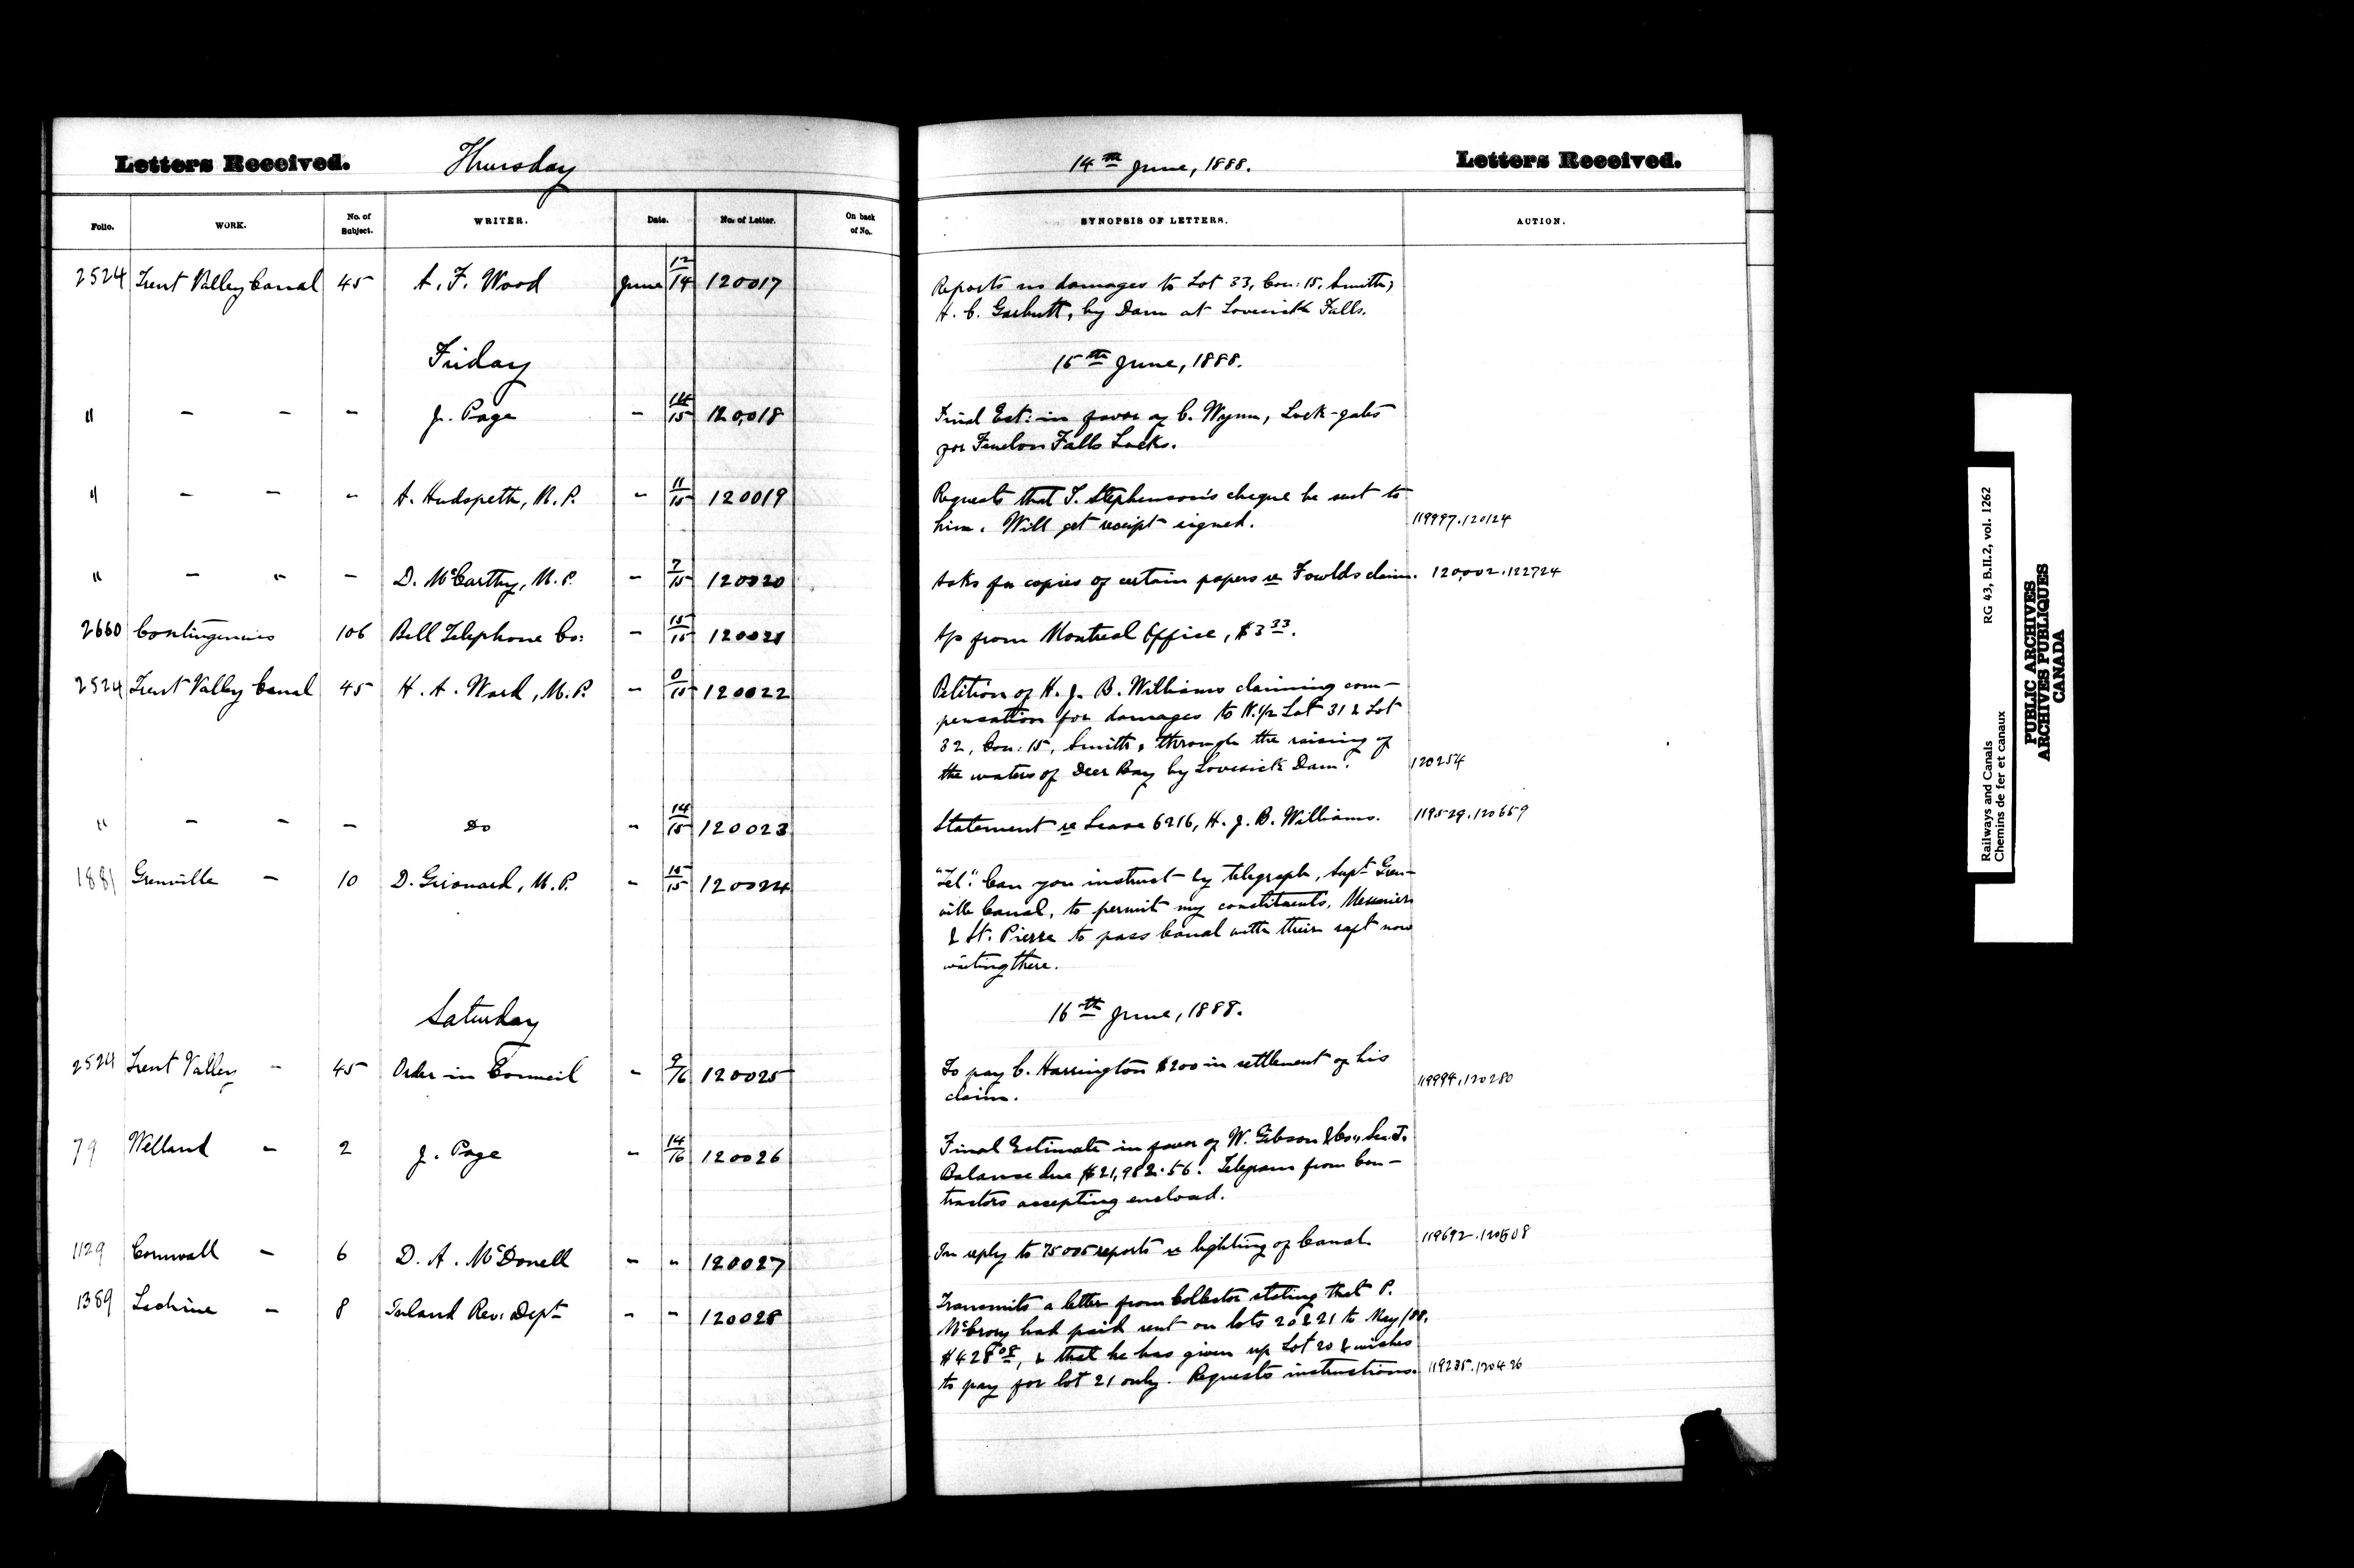 Letters Received. Thursday 14th June, 1888. Letters Received.
Folio. WORK. No. of Subject. WRITER. Date. No. of Letter. On back of No. SYNOPSIS OF LETTERS. ACTION.
2524 Trent Valley Canal 45 A. F. Wood June 12/14 120017 Reports no damages to Lot 33, Con: 15, Smith,
H. C. Garbutt, by Dam at Lovesick Falls.
Friday 15th June, 1888.
" - - - J. Page - 14/15 120,018 Final Est: in favor of C. Wynn, Lock-gates
for Fenelon Falls Locks.
" - - - A. Hudspeth, M.P. - 11/15 120019 Requests that T. Stephenson's cheque be sent to
him. Will get receipt signed. 119997.120124
" - " - D. McCarthy, M.P. - 7/15 120020 Asks for copies of certain papers re Fowlds claim. 120,002.122724
2660 Contingencies 106 Bell Telephone Co: - 15/15 120021 A/c from Montreal Office, $3 33.
2524 Trent Valley Canal 45 H. A. Ward, M.P. - 0/15 120022 Petition of H. J. B. Williams claiming com-
pensation for damages to N.1/2 Lot 31 & Lot
32, Con: 15, Smith, through the raising of
the waters of Deer Bay by Lovesick Dam. 120254
" - - - Do - 14/15 120023 Statement re Lease 6216, H. J. B. Williams. 119529.120659
1881 Grenville - 10 D. Girouard, M.P. - 15/15 120024 "Tel." Can you instruct by telegraph, Supt Gren-
ville Canal, to permit my constituents,
& St. Pierre to pass Canal with their raft now
waiting there.
Saturday 16th June, 1888.
2524 Trent Valley - 45 Order in Council - 9/16 120025 To pay C. Harrington $200 in settlement of his
claim. 119994.120280
79 Welland - 2 J. Page - 14/16 120026 Final Estimate in favor of W. Gibson & Co., Sec. J.
Balance due $21,982.56. Telegram from Con-
tractors accepting enclosed.
1129 Cornwall - 6 D. A. McDonell - " 120027 In reply to 75005 reports re lighting of Canal 119692.120508
1389 Lachine - 8 Inland Rev: Dept - - 120028 Transmits a letter from Collector stating that P.
McCrory had paid rent on lots 20 & 21 to May/88,
$428 08, & that he has given up Lot 20 & wishes
to pay for lot 21 only. Requests instructions. 119235.120426
Railways and Canals RG 43, B.II.2, vol. 1262
Chemins de fer et canaux
PUBLIC ARCHIVES
ARCHIVES PUBLIQUES
CANADA